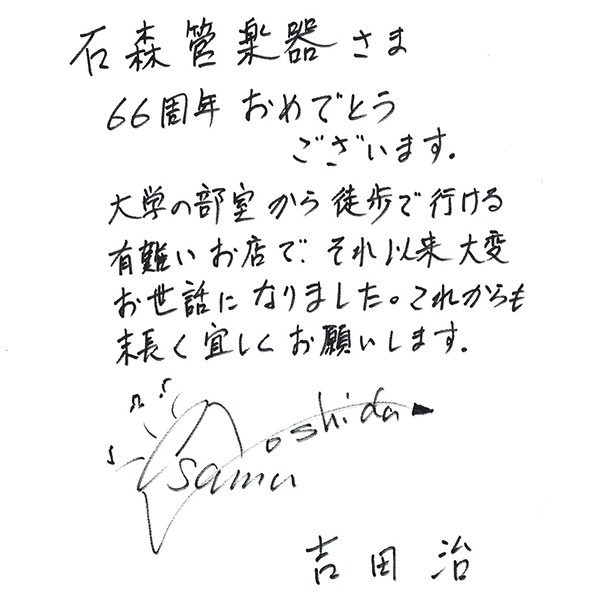 石森管楽器さま
66周年 おめでとう
ございます.
大学の部室から徒歩で行ける
有難いお店で、それ以来大変
お世話になりました。これからも
末長く宜しくお願いします.
Osamu Yoshida
吉田 治